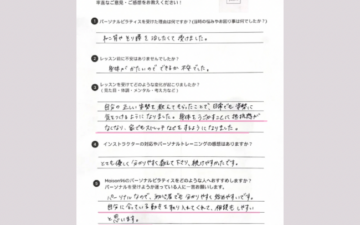 率直なご意見・ご感想をお聞かせください！
1 パーソナルピラティスを受けた理由は何ですか？(当時の悩みや お困り事は何でしたか？)
ねこ背やそり腰を治したくて受けました。
2 レッスン前に不安はありませんでしたか？
身体がかたいのでできるか不安でした。
3 レッスンを受けてどのような変化が起こりましたか？
(見た目・体調・メンタル・考え方など)
自分の正しい姿勢を教えてもらったことで、日常でも姿勢に
気をつけるようになりました。身体をうごかすことに抵抗感が
なくなり、家でもストレッチなどをするようになりました。
4 インストラクターの対応やパーソナルトレーニングの感想はありますか？
とても優しく分かりやすく教えて下さり、続けやすかったです。
5 のパーソナルピラティスをどのような人へおすすめしますか？
パーソナルを受けようか迷っている人に一言お願いします。
パーソナルなので、初心者でも分かりやすく始めやすいです。
自分に合っている動きを取り入れてくれて、相談もしやすい
と思います。